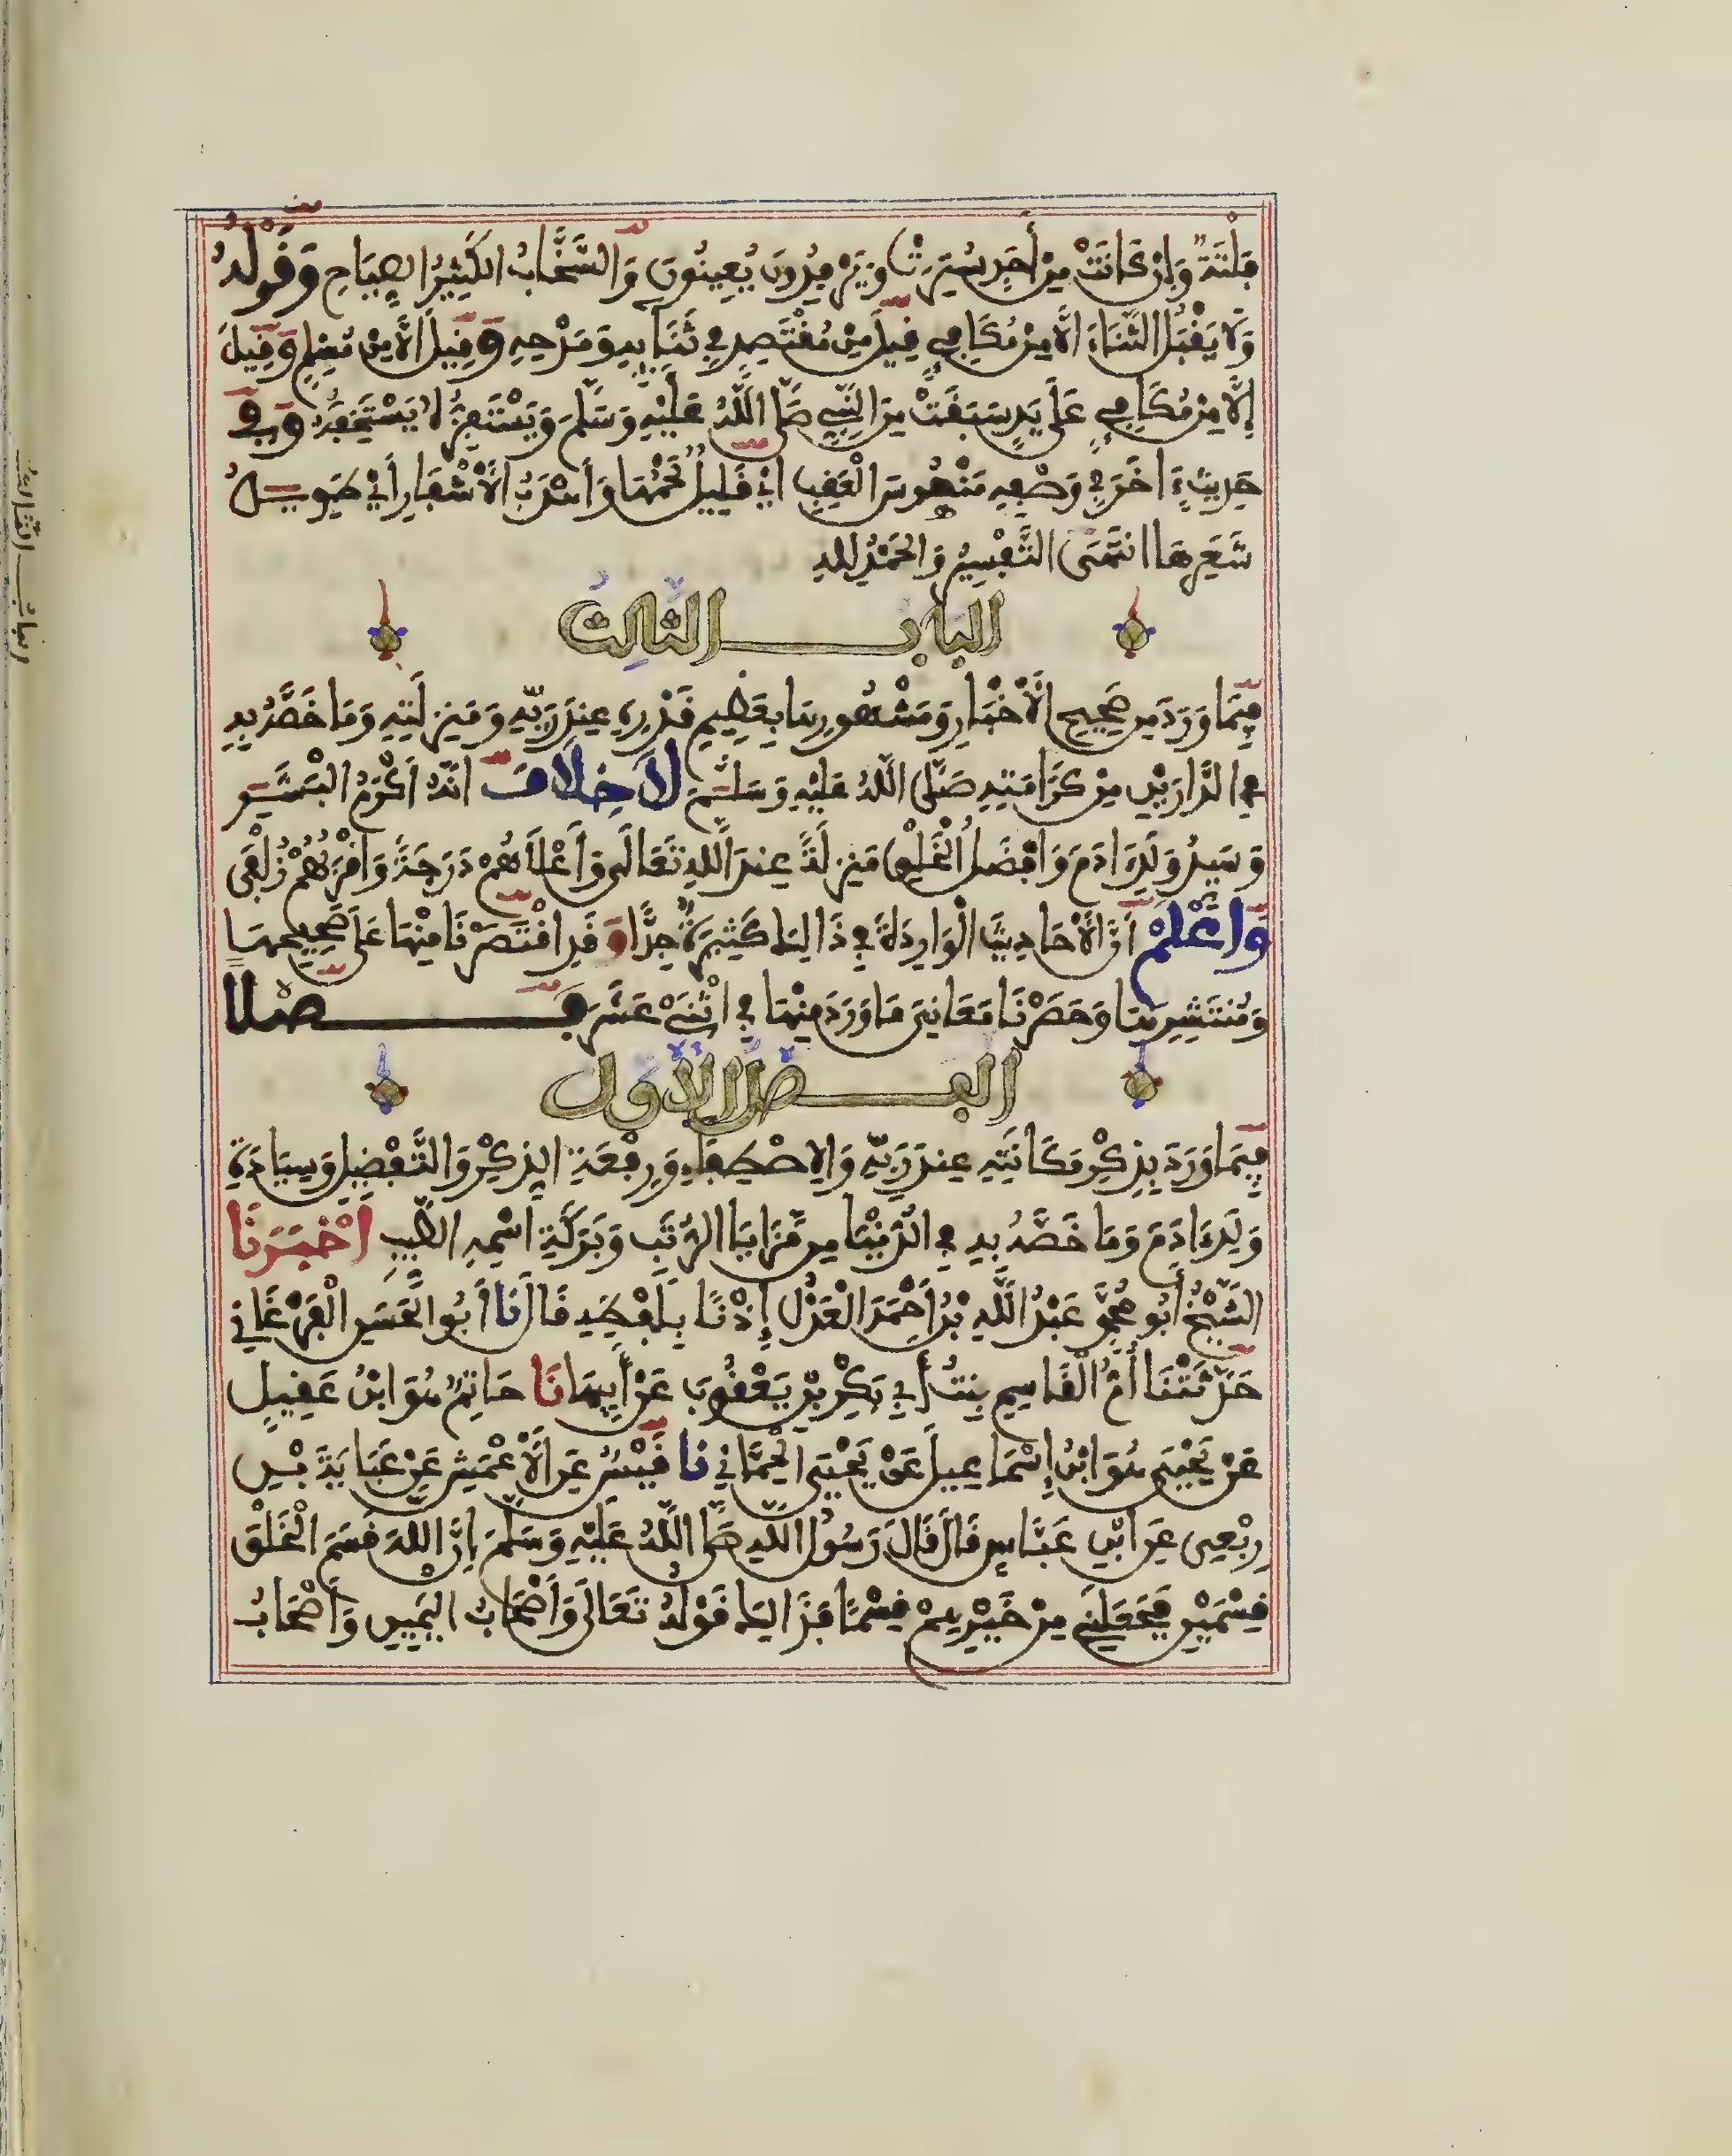 فَلْتَةٌ وَإِنْ كَانَتْ مِنْ أَحَدٍ سُتِرَتْ وَيَرْفِدُونَ يُعِينُونَ وَالسَّخَّابُ الْكَثِيرُ الصِّيَاحِ وَقَوْلُهُ
وَلَا يَقْبَلُ الثَّنَاءَ إِلَّا مِنْ مُكَافِئٍ قِيلَ مِنْ مُقْتَصِدٍ فِي ثَنَائِهِ وَمَدْحِهِ وَقِيلَ إِلَّا مِنْ مُسْلِمٍ وَقِيلَ
إِلَّا مِنْ مُكَافِئٍ عَلَى يَدٍ سَبَقَتْ مِنَ النَّبِيِّ صَلَّى اللَّهُ عَلَيْهِ وَسَلَّمَ وَيَسْتَفِزُّهُ يَسْتَخِفُّهُ وَفِي
حَدِيثٍ آخَرَ فِي وَصْفِهِ مَنْهُوسَ الْعَقِبِ أَيْ قَلِيلُ لَحْمُهَا وَأَهْدَبُ الْأَشْفَارِ أَيْ طَوِيلُ
شَعَرِهَا انْتَهَى التَّفْسِيرُ وَالْحَمْدُ لِلَّهِ
الْبَابُ الثَّالِثُ
فِيمَا وَرَدَ مِنْ صَحِيحِ الْأَخْبَارِ وَمَشْهُورِهَا بِعَظِيمِ قَدْرِهِ عِنْدَ رَبِّهِ وَمَنْزِلَتِهِ وَمَا خَصَّهُ بِهِ
فِي الدَّارَيْنِ مِنْ كَرَامَتِهِ صَلَّى اللَّهُ عَلَيْهِ وَسَلَّمَ لَا خِلَافَ أَنَّهُ أَكْرَمُ الْبَشَرِ
وَسَيِّدُ وَلَدِ آدَمَ وَأَفْضَلُ الْخَلْقِ مَنْزِلَةً عِنْدَ اللَّهِ تَعَالَى وَأَعْلَاهُمْ دَرَجَةً وَأَقْرَبُهُمْ زُلْفَى
وَاعْلَمْ أَنَّ الْأَحَادِيثَ الْوَارِدَةَ فِي ذَلِكَ كَثِيرَةٌ جِدًّا وَقَدِ اقْتَصَرْنَا مِنْهَا عَلَى صَحِيحِهَا
وَمُنْتَشِرِهَا وَحَصَرْنَا مَعَانِيَ مَا وَرَدَ مِنْهَا فِي اثْنَيْ عَشَرَ فَصْلًا
الْفَصْلُ الْأَوَّلُ
فِيمَا وَرَدَ بِذِكْرِ مَكَانَتِهِ عِنْدَ رَبِّهِ وَالِاصْطِفَاءِ وَرِفْعَةِ الذِّكْرِ وَالتَّفْضِيلِ وَسِيَادَةِ
وَلَدِ آدَمَ وَمَا خَصَّهُ بِهِ فِي الدُّنْيَا مِنْ مَزَايَا الرُّتَبِ وَبَرَكَةِ اسْمِهِ الطَّيِّبِ أَخْبَرَنَا
الشَّيْخُ أَبُو مُحَمَّدٍ عَبْدُ اللَّهِ بْنُ أَحْمَدَ الْعَدْلُ إِذْنًا بِلَفْظِهِ قَالَ نَا أَبُو الْحَسَنِ الْفَرْغَانِي
حَدَّثَتْنَا أُمُّ الْقَاسِمِ بِنْتُ أَبِي بَكْرِ بْنِ يَعْقُوبَ عَنْ أَبِيهَا نَا حَاتِمٌ هُوَ ابْنُ عَقِيلٍ
عَنْ يَحْيَى هُوَ ابْنُ إِسْمَاعِيلَ عَنْ يَحْيَى الْحِمَّانِي نَا قَيْسٌ عَنِ الْأَعْمَشِ عَنْ عَبَايَةَ بْنِ
رِبْعِي عَنِ ابْنِ عَبَّاسٍ قَالَ قَالَ رَسُولُ اللَّهِ صَلَّى اللَّهُ عَلَيْهِ وَسَلَّمَ إِنَّ اللَّهَ قَسَمَ الْخَلْقَ
قِسْمَيْنِ فَجَعَلَنِي مِنْ خَيْرِهِمْ قِسْمًا فَذَلِكَ قَوْلُهُ تَعَالَى وَأَصْحَابُ الْيَمِينِ وَأَصْحَابُ
الْبَابُ الثَّالِثُ